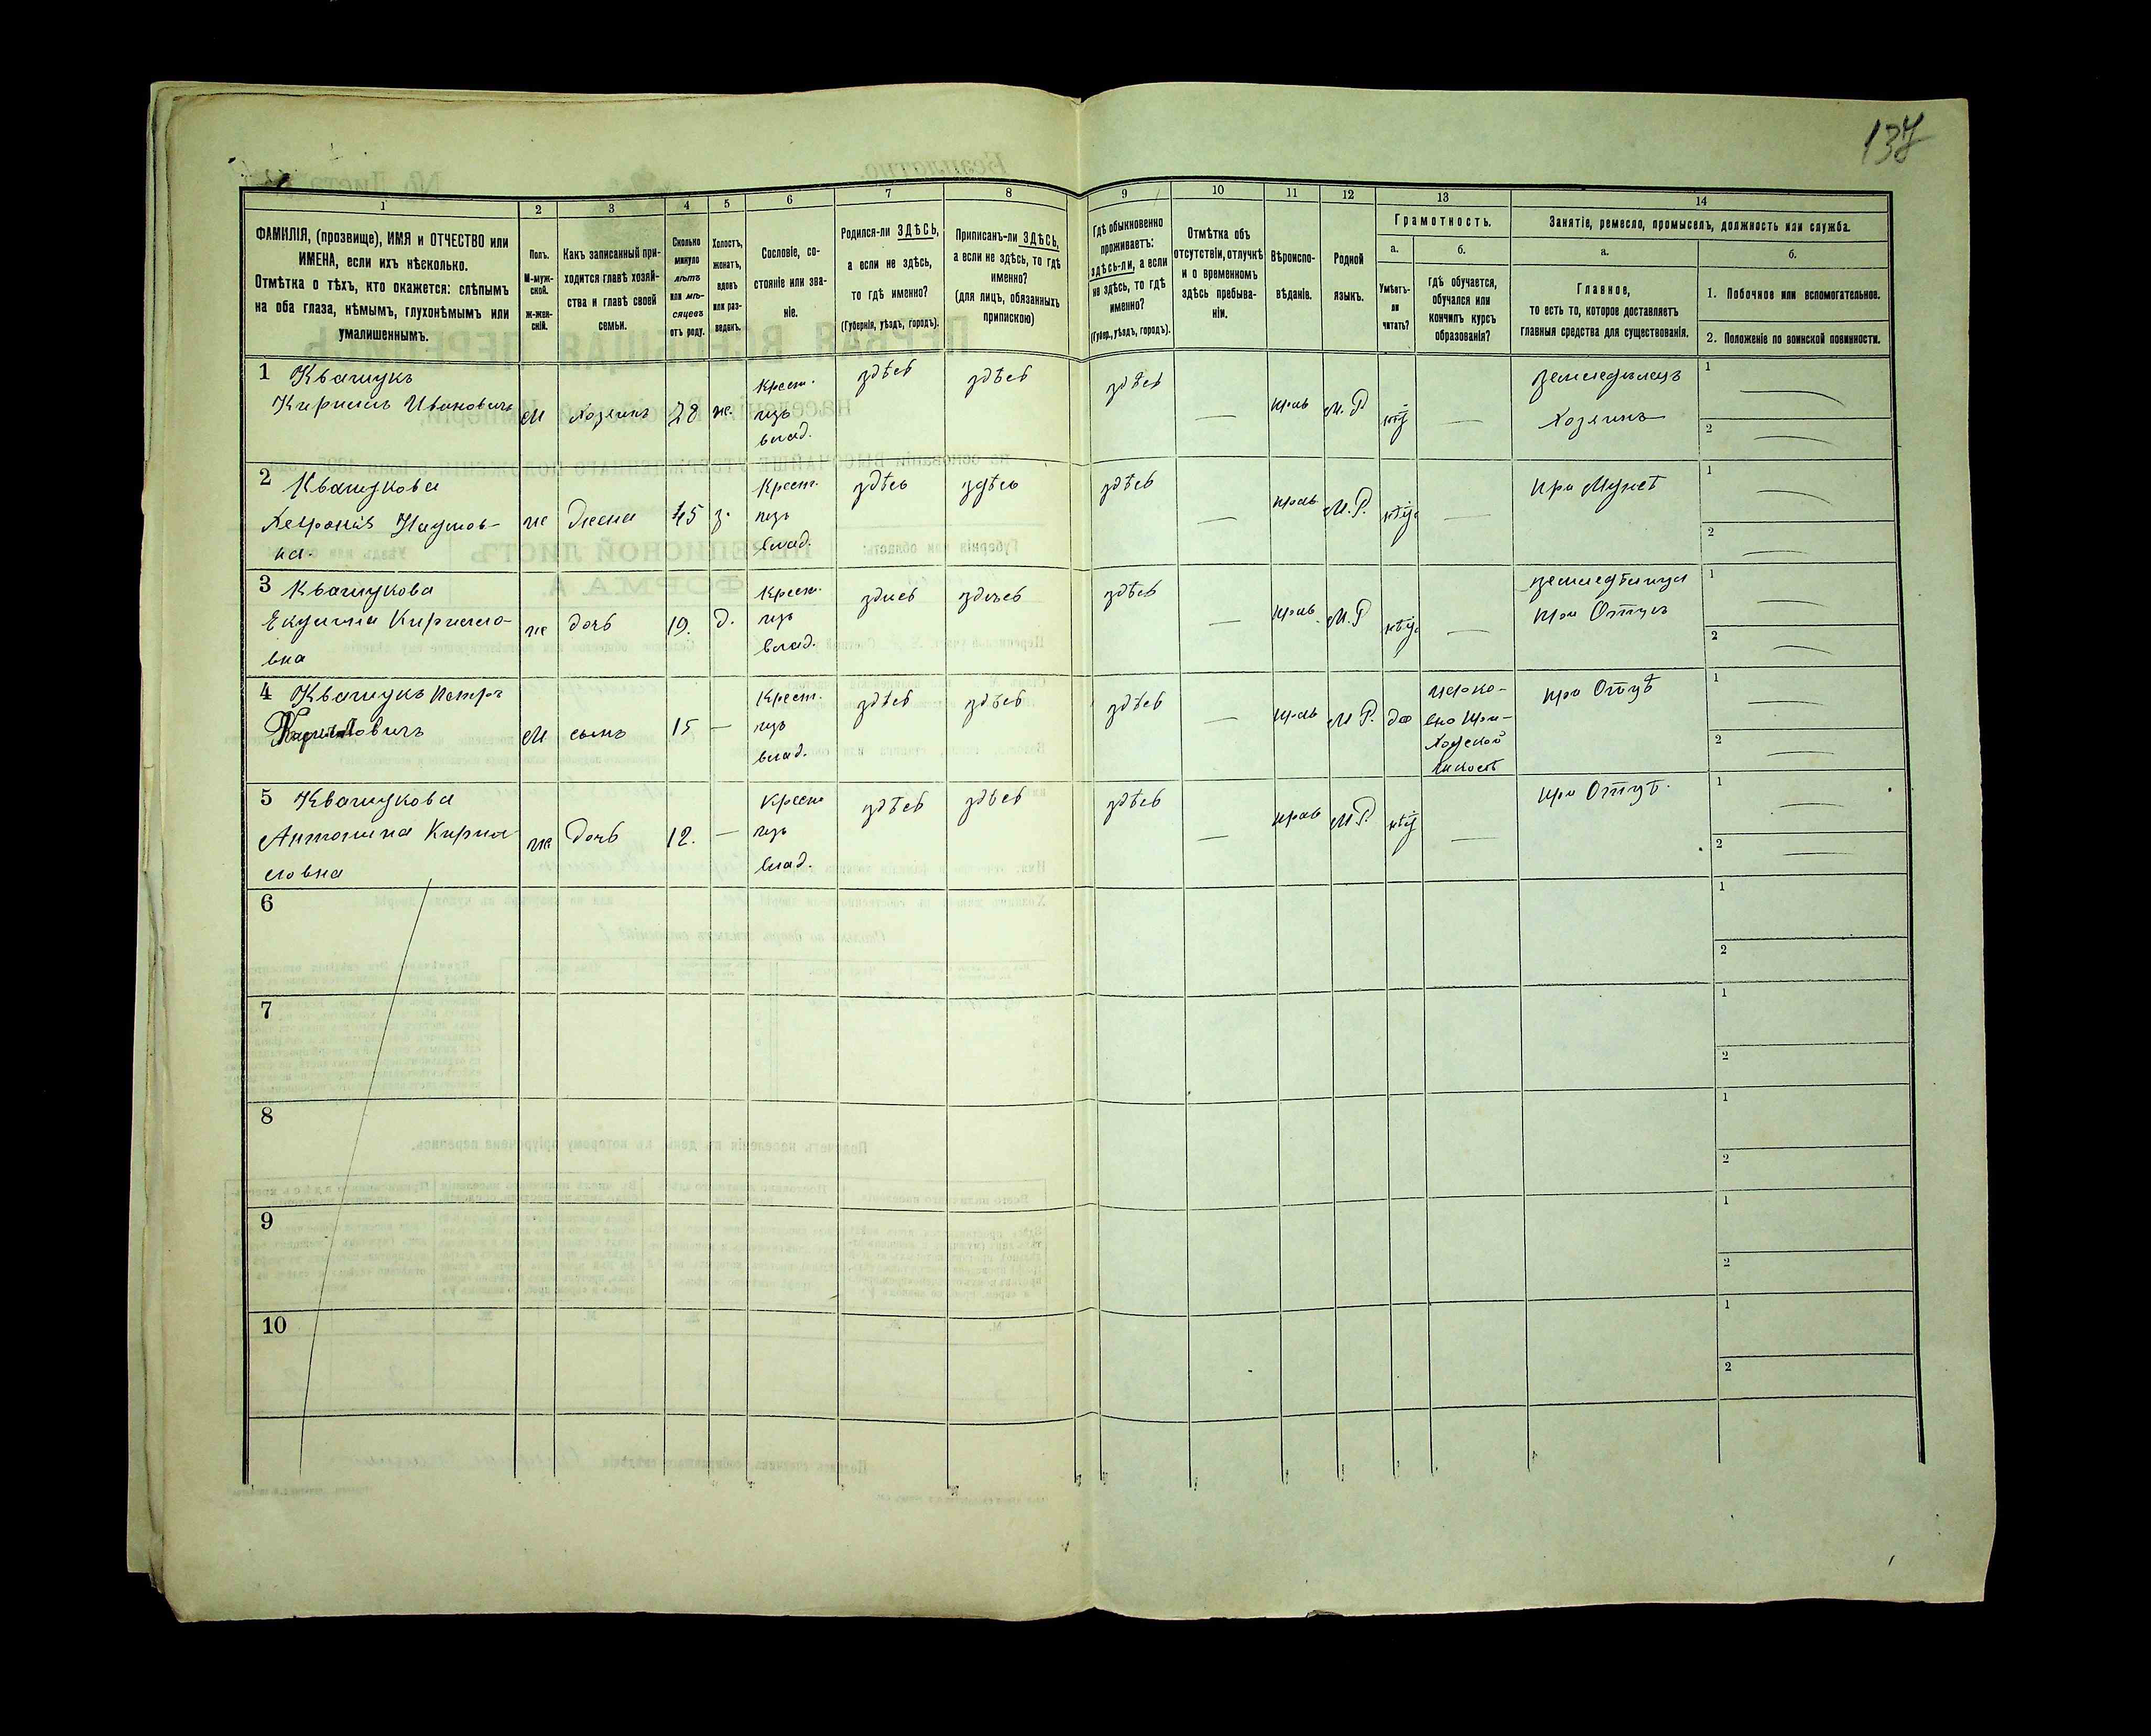 137
1
2
3
4
5
6
7
8
9
10
11
12
13
14
ФАМИЛІЯ, (прозвище), ИМЯ и ОТЧЕСТВО или
ИМЕНА, если ихъ нѣсколько.
Отмѣтка о тѣхъ, кто окажется: слѣпымъ
на оба глаза, нѣмымъ, глухонѣмымъ или
умалишеннымъ.
Полъ.
М-муж-
ской.
ж-жен-
скій.
Какъ записанный при-
ходится главѣ хозяй-
ства и главѣ своей
семьи.
Сколько
минуло
лѣтъ
или мѣ-
сяцевъ
отъ роду.
Холостъ,
женатъ,
вдовъ
или раз-
веденъ.
Сословіе, со-
стояніе или зва-
ніе.
Родился-ли ЗДѢСЬ,
а если не здѣсь,
то гдѣ именно?
(Губернія, уѣздъ, городъ).
Приписанъ-ли ЗДѢСЬ,
а если не здѣсь, то гдѣ
именно?
(для лицъ, обязанныхъ
припискою)
Гдѣ обыкновенно
проживаетъ:
здѣсь-ли, а если
не здѣсь, то гдѣ
именно?
(Губер., уѣздъ, городъ).
Отмѣтка объ
отсутствіи, отлучкѣ
и о временномъ
здѣсь пребыва-
ніи.
Вѣроиспо-
вѣданіе.
Родной
языкъ.
Грамотность.
а.
Умѣетъ-
ли
читать?
б.
Гдѣ обучается,
обучался или
кончилъ курсъ
образованія?
Занятіе, ремесло, промыселъ, должность или служба.
а.
Главное,
то есть то, которое доставляетъ
главныя средства для существованія.
б.
1. Побочное или вспомогательное.
2. Положеніе по воинской повинности.
1 Квашукъ
Кирилъ Ивановичъ
М
Хозяинъ
ж.
Крест.
изъ
влад.
здѣсь
здѣсь
здѣсь
—
прав
М. Р
нѣт
—
земледѣлецъ
Хозяинъ
1 —
2 —
2 Квашукова
Наумов-
на.
ж
Жена
45
з.
Крест.
изъ
влад.
здѣсь
здѣсь
здѣсь
—
прав
М. Р.
нѣт
—
при Мужѣ
1 —
2 —
3 Квашукова
Кирило-
вна
ж
дочь
19.
д.
Крест.
изъ
влад.
здѣсь
здѣсь
здѣсь
—
прав
М. Р
нѣт
—
при Отцѣ
1 —
2 —
4 Квашукъ Петръ
Кириловичъ
М
сынъ
15
—
Крест.
изъ
влад.
здѣсь
здѣсь
здѣсь
—
прав
М. Р.
да
церко-
вно при-
ходской
школѣ
при Отцѣ
1 —
2 —
5 Квашукова
Антонина Кири-
ловна
ж
дочь
12.
—
Крест
изъ
влад.
здѣсь
здѣсь
здѣсь
—
прав
М. Р.
нѣт
—
при Отцѣ.
1 —
2 —
6
1
2
7
1
2
8
1
2
9
1
2
10
1
2